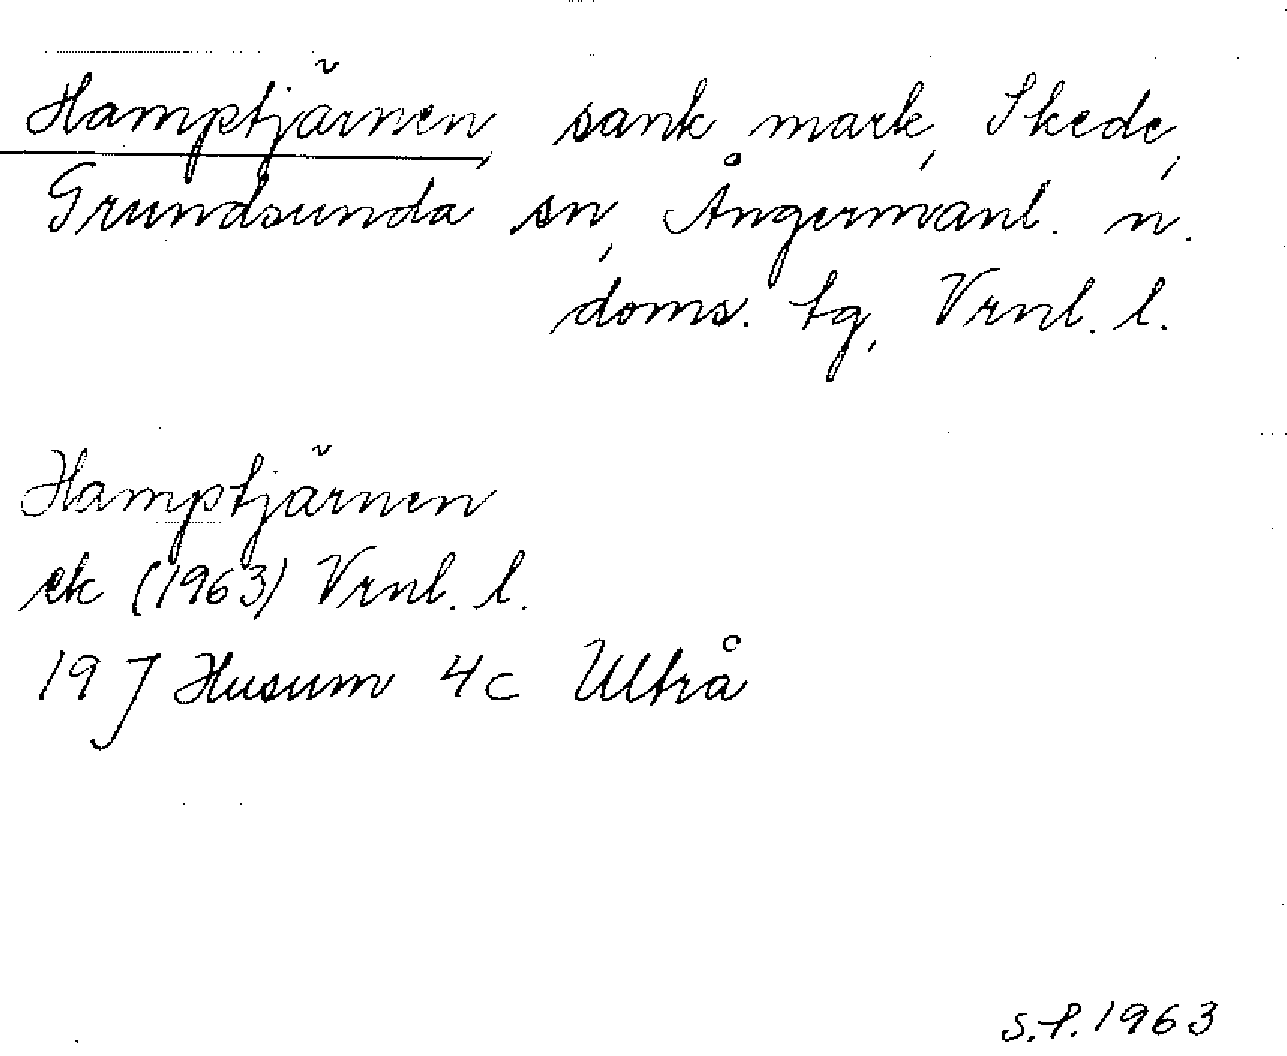 Hamptjärnen, sank mark, Skede,
Grundsunda sn, Ångermanl. n.
doms. tg, Vrnl. l.
Hamptjärnen
ek (1963) Vrnl. l.
19 J Husum 4c Ultrå
S.P. 1963